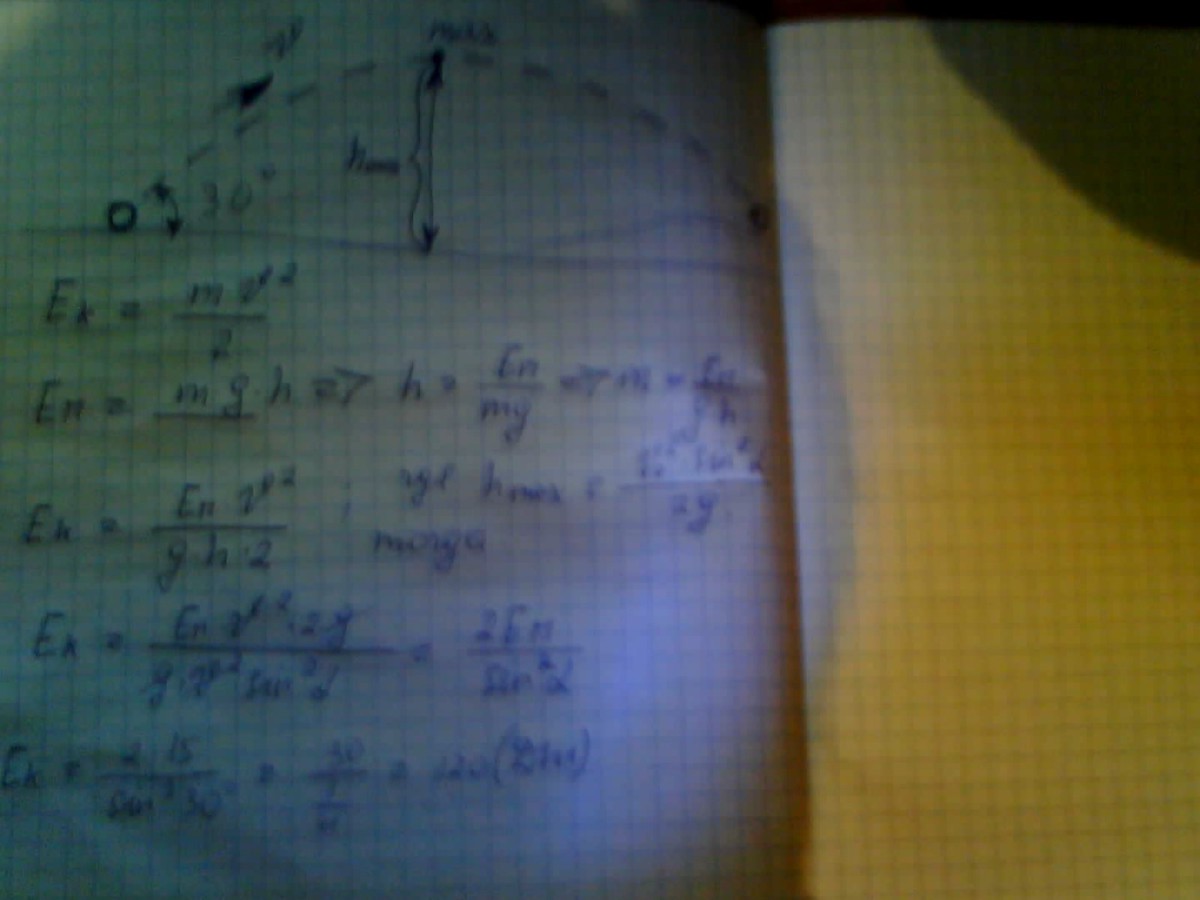 v max
h max
30°
Eк = mv²/2
Eп = mg·h => h = Eп/mg => m = Eп/g·h
Eк = Eп v²/g·h·2 ; где h max = v₀² sin²α/2g
тогда
Eк = Eп v²·2·g/g·v² sin²α = 2Eп/sin²α
Eк = 2·15/sin²30° = 30/(1/4) = 120 (Дж)